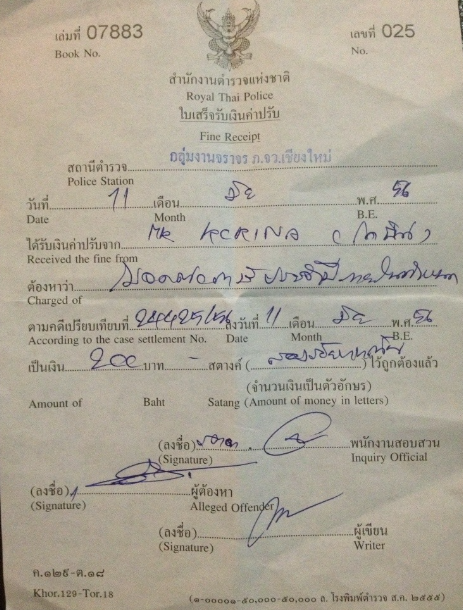 เล่มที่ 07883 เลขที่ 025
Book No. No.
สำนักงานตำรวจแห่งชาติ
Royal Thai Police
ใบเสร็จรับเงินค่าปรับ
Fine Receipt
สถานีตำรวจ กลุ่มงานจราจร ภ.จว.เชียงใหม่
Police Station
วันที่ 11 เดือน มิย พ.ศ. 56
Date Month B.E.
ได้รับเงินค่าปรับจาก MR
Received the fine from
ต้องหาว่า
Charged of
ตามคดีเปรียบเทียบที่ ลงวันที่ 11 เดือน มิย พ.ศ. 56
According to the case settlement No. Date Month B.E.
เป็นเงิน 200 บาท - สตางค์ (สองร้อยบาทถ้วน) ไว้ถูกต้องแล้ว
(จำนวนเงินเป็นตัวอักษร)
Amount of Baht Satang (Amount of money in letters)
(ลงชื่อ) พนักงานสอบสวน
(Signature) Inquiry Official
(ลงชื่อ) ผู้ต้องหา
(Signature) Alleged Offender
(ลงชื่อ) ผู้เขียน
(Signature) Writer
ค.๑๒๙-ต.๑๘
Khor.129-Tor.18
(๑-๐๐๐๐๑-๕๐,๐๐๐-๕๐,๐๐๐ ล. โรงพิมพ์ตำรวจ ส.ค. ๒๕๕๕)